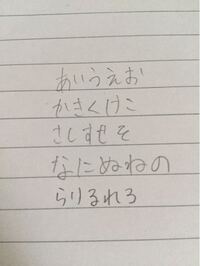 あいうえお
かきくけこ
さしすせそ
なにぬねの
らりるれろ